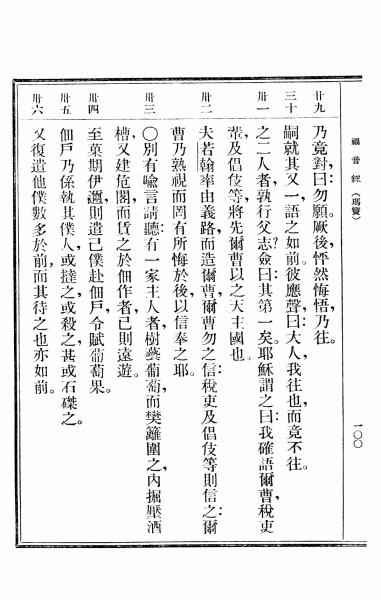 福音經(瑪竇)
一〇〇
廿九 乃竟對曰:勿願。厥後怦然悔悟,乃往。
三十 嗣就其又一語之如前。彼應聲曰:大人,我往也。而竟不往。
卅一 之二人者,孰行父志?僉曰:其第一矣。耶穌謂之曰:我確語爾曹,稅吏
輩及倡伎等,將先爾曹以之天主國也。
卅二 夫若翰率由義路而造爾曹,爾曹勿之信;稅吏及倡伎等則信之;爾
曹乃熟視而罔有所悔於後以信奉之耶。
卅三 〇別有喻言請聽:有一家主人者,樹藝葡萄,而樊籬圍之,內掘壓酒
槽,又建危閣,而賃之於佃作者,己則遠遊。
卅四 至菓期伊邇,則遣己僕赴佃戶,令賦葡萄果。
卅五 佃戶乃係執其僕人,或撻之,或殺之,甚或石磔之。
卅六 又復遣他僕,數多於前,而其待之也亦如前。